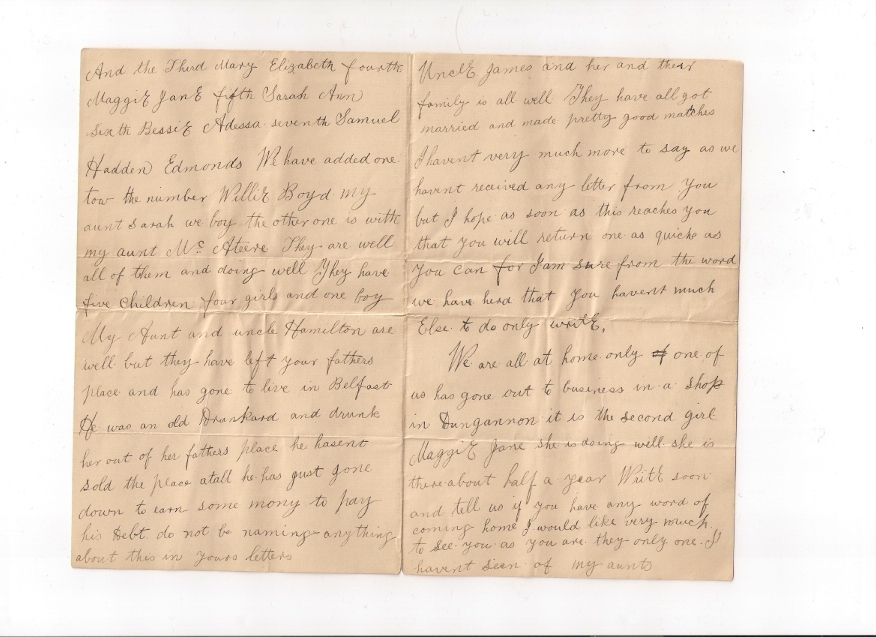 And the Third Mary Elizabeth fourth
MaggiE JanE fifth Sarah Ann
Sixth BessiE Adessa seventh Samuel
Hadden Edmonds We have added one
tow the number WilliE Boyd my
aunt Sarah we boy the other one is with
my aunt Mc Ateere They are well
all of them and doing well They have
five Children four girls and one boy
My Aunt and uncle Hamilton are
well but they have left your fathers
place and has gone to live in Belfast
He was an old Drankard and drunk
her out of her fathers place he hasent
sold the place atall he has just gone
down to earn some mony to pay
his Debt do not be naming anything
about this in yours letters
UnclE James and her and their
family is all well They have all got
married and made pretty good matches
I havent very much more to say as we
havent received any letter from you
but I hope as soon as this reaches you
that you will return one as quick as
you can for I am sure from the word
we have herd that you havent much
Else to do only writE.
We are all at home only of one of
us has gone out to business in a shop
in Dungannon it is the second girl
MaggiE Jane she is doing well she is
there about half a year WritE soon
and tell us if you have any word of
coming home I would like very much
to see you as you are they only one I
havent seen of my aunts